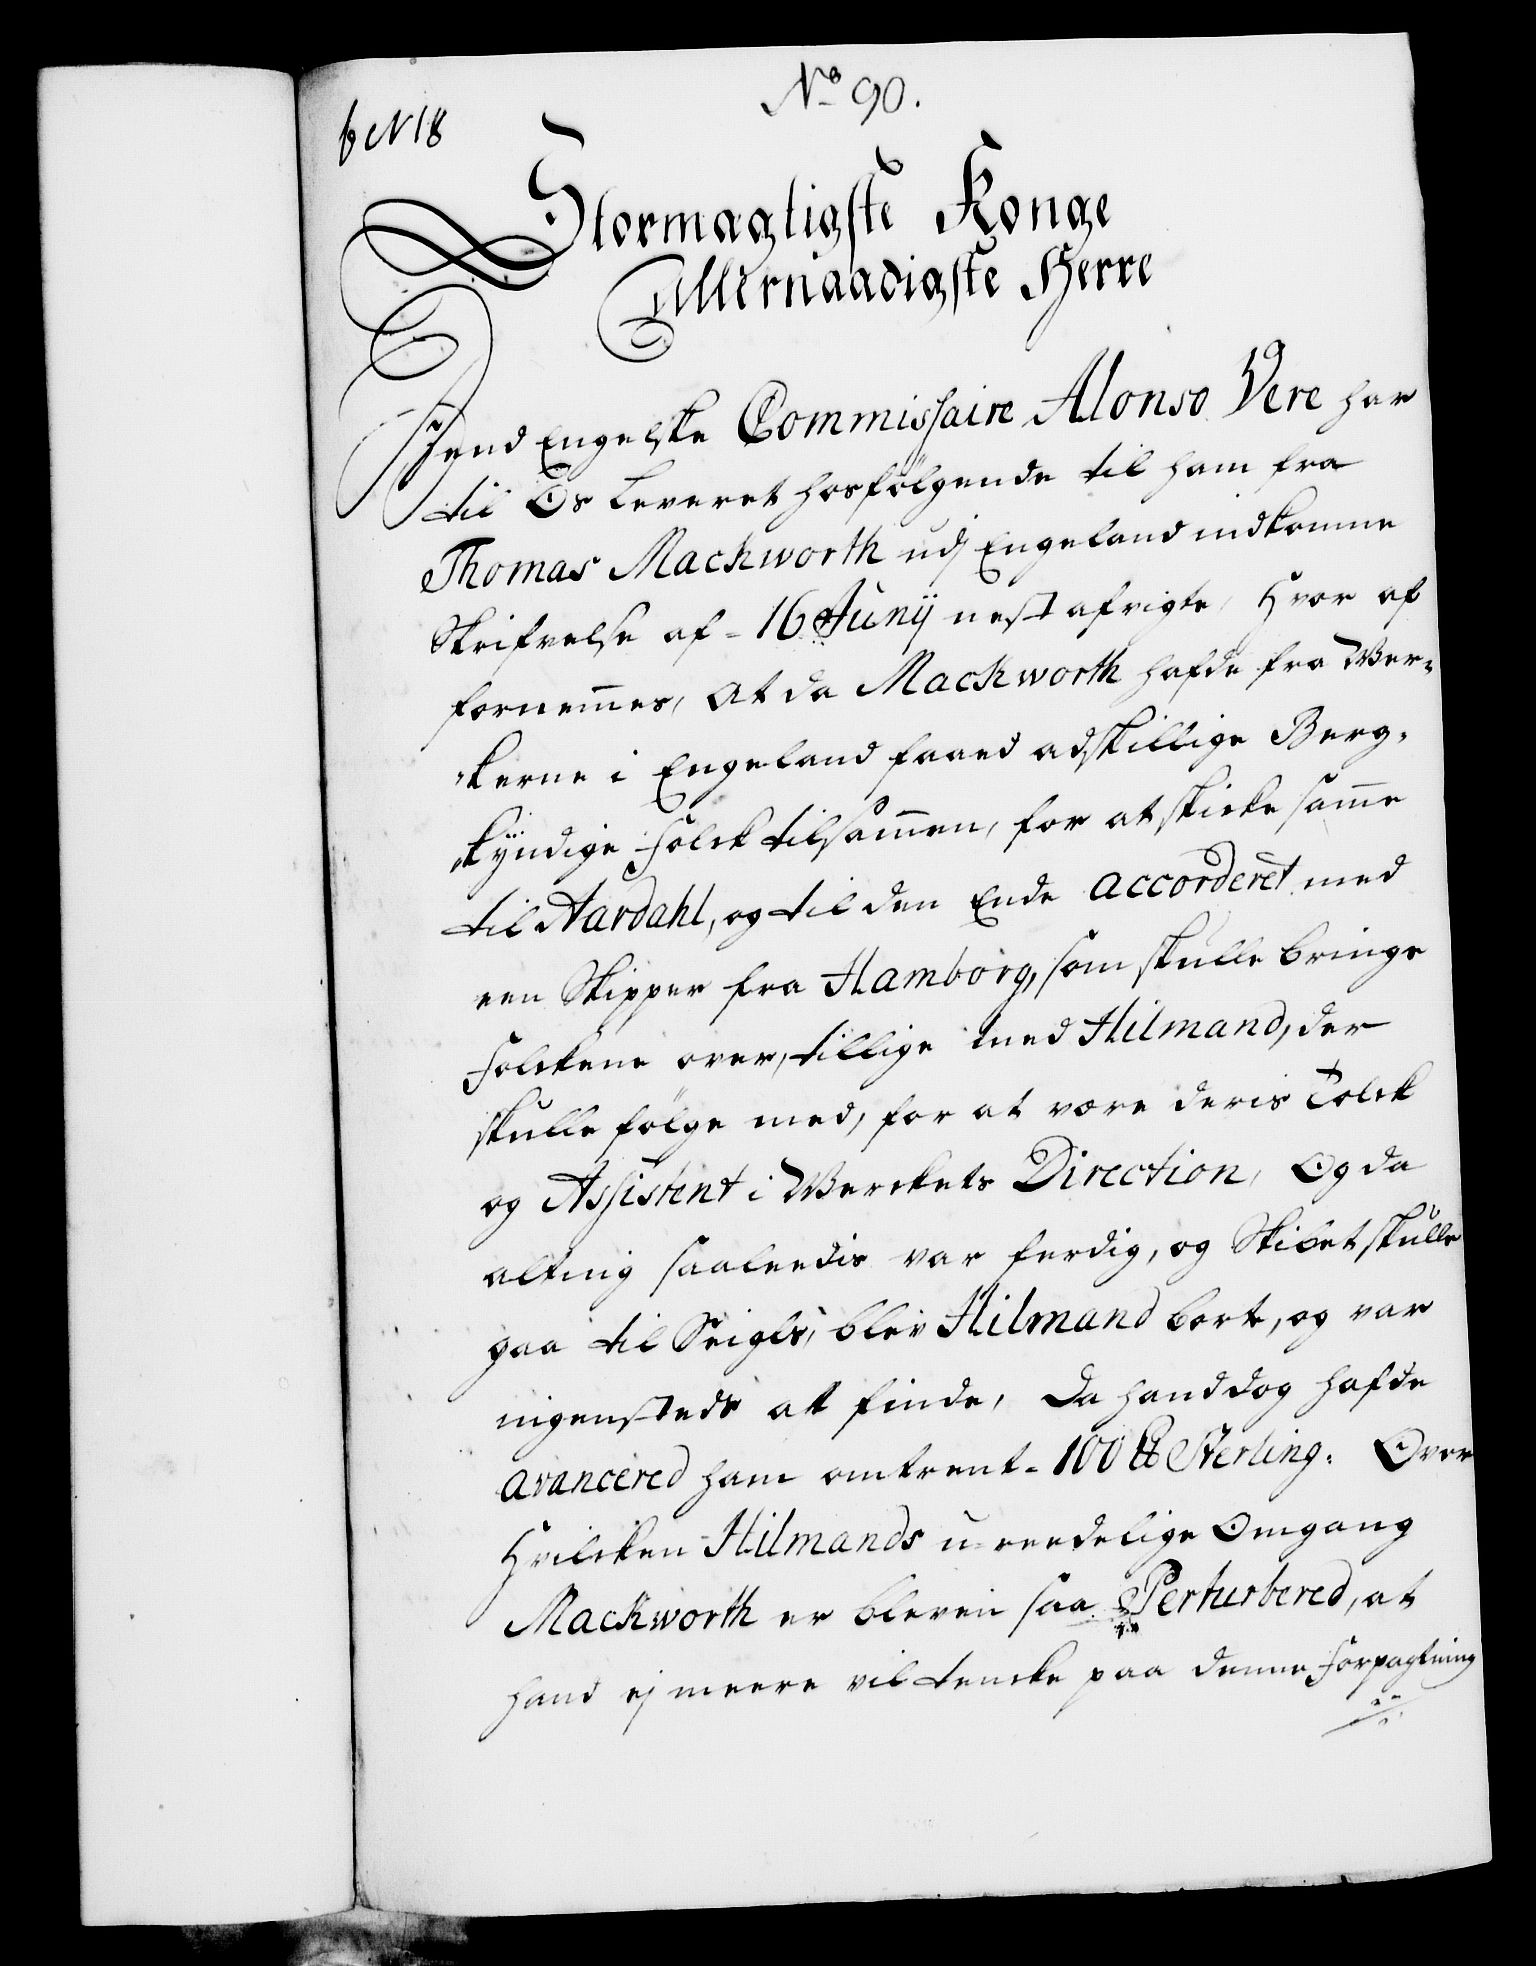 No 90.
b N 18
Stormagtigste Konge
Allernaadigste Herre
Hend Engelske Commissaire Alonso Vere har
til Os leveret hosfölgende til ham fra
Thomas Mackworth udj Engeland indkomne
Skrifvelse af - 16 Junij nest afvigte, Hvor af
fornem̅es, At da Mackworth hafde fra Ver=
"kerne i Engeland faaed adskillige Berg=
"kÿndige Folck tilsam̅en, for at skicke sam̅e
til Aardahl, og til den Ende accorderet med
een Skipper fra Hamborg, som skulle bringe
Folckene over, tillige med Hilmand, der
skulle fölge med, for at være deris Tolck
og Assistent i Werckets Direction, Og da
alting saaleedis var ferdig, og Skibet skulle
gaa til Seigls, blev Hilmand bort, og var
ingensteds at finde, Da hand dog hafde
avancered ham omtrent - 100 ℔ Sterling. Over
Hvilcken Hilmands u-reedelige Omgang
Mackworth er bleven saa Perturbered, at
hand ej meere vil tencke paa denne Forpagtning